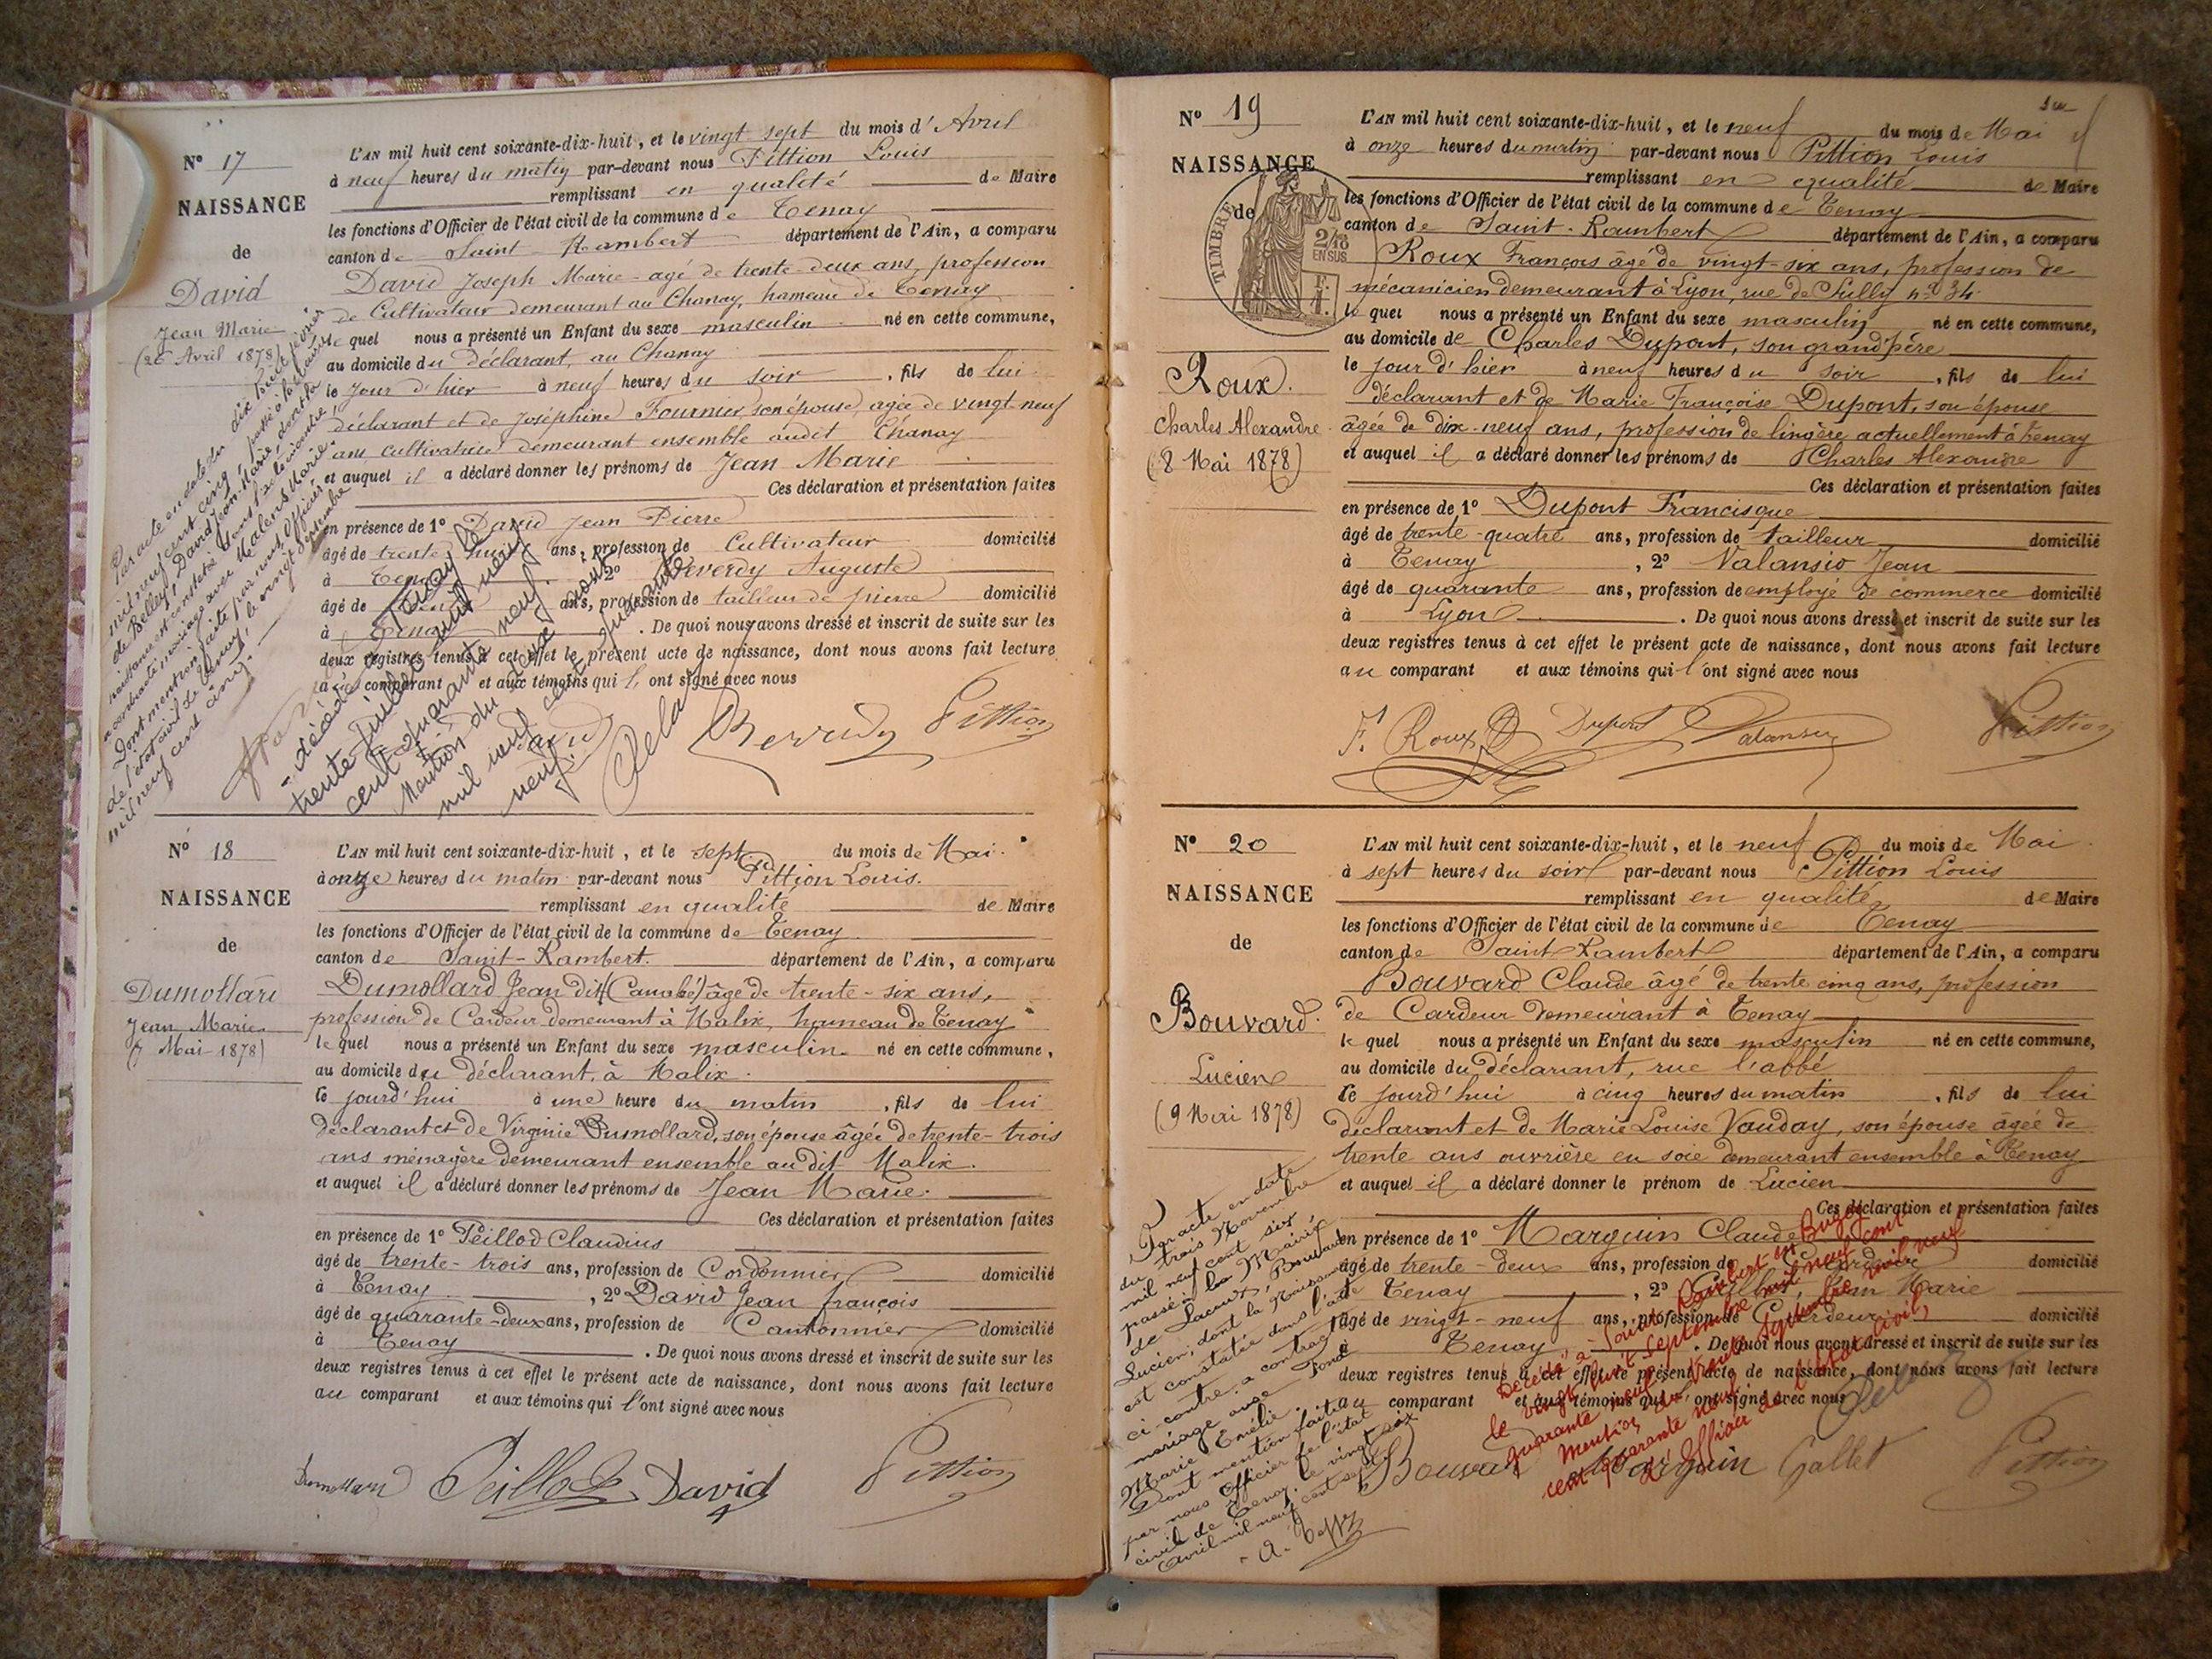 N° 17
NAISSANCE
de
David
Jean Marie
(26 Avril 1878)
L'AN mil huit cent soixante-dix-huit, et le vingt sept du mois d'Avril
à neuf heures du matin par-devant nous Pittion Louis
remplissant en qualité de Maire
les fonctions d'Officier de l'état civil de la commune de Tenay
canton de Saint-Rambert département de l'Ain, a comparu
David Joseph Marie agé de trente-deux ans, profession
de Cultivateur demeurant au Chanay, hameau de Tenay
le quel nous a présenté un Enfant du sexe masculin né en cette commune,
au domicile du déclarant, au Chanay
le jour d'hier à neuf heures du soir, fils de lui
déclarant et de Joséphine Fournier, son épouse, agée de vingt-neuf
ans, cultivatrice demeurant ensemble audit Chanay
et auquel il a déclaré donner les prénoms de Jean Marie
Ces déclaration et présentation faites
en présence de 1° David Jean Pierre
âgé de trente huit ans, profession de Cultivateur domicilié
à Tenay, 2° Reverdy Auguste
âgé de ans, profession de tailleur de pierre domicilié
à Tenay. De quoi nous avons dressé et inscrit de suite sur les
deux registres tenus à cet effet le présent acte de naissance, dont nous avons fait lecture
au comparant et aux témoins qui l'ont signé avec nous
David Reverdy Pittion
Par acte en date du dix huit février
mil neuf cent cinq, passé à la mairie
de Belley, David Jean-Marie, dont la
naissance est constatée dans l'acte ci-contre
a contracté mariage avec Marie
Dont mention faite par nous, Officier
de l'état civil de Tenay, le vingt Septembre
mil neuf cent cinq.
Décédé à Tenay le
trente Juillet mil neuf
cent quarante neuf.
Mention du deux août
mil neuf cent quarante
neuf.
N° 18
NAISSANCE
de
Dumollard
Jean Marie
(7 Mai 1878)
L'AN mil huit cent soixante-dix-huit, et le sept du mois de Mai
à onze heures du matin par-devant nous Pittion Louis.
remplissant en qualité de Maire
les fonctions d'Officier de l'état civil de la commune de Tenay
canton de Saint-Rambert. département de l'Ain, a comparu
Dumollard Jean dit (Canabé) âgé de trente-six ans,
profession de Cardeur demeurant à Malix, hameau de Tenay
le quel nous a présenté un Enfant du sexe masculin né en cette commune,
au domicile du déclarant, à Malix.
Ce jourd'hui à une heure du matin, fils de lui
déclarant et de Virginie Dumollard, son épouse âgée de trente-trois
ans ménagère demeurant ensemble audit Malix.
et auquel il a déclaré donner les prénoms de Jean Marie.
Ces déclaration et présentation faites
en présence de 1° Peillod Claudius
âgé de trente-trois ans, profession de Cordonnier domicilié
à Tenay, 2° David Jean françois
âgé de quarante-deux ans, profession de Cantonnier domicilié
à Tenay. De quoi nous avons dressé et inscrit de suite sur les
deux registres tenus à cet effet le présent acte de naissance, dont nous avons fait lecture
au comparant et aux témoins qui l'ont signé avec nous
Dumollard Peillod David Pittion
N° 19
NAISSANCE
de
TIMBRE
2/10
EN SUS
Roux.
Charles Alexandre
(8 Mai 1878)
L'AN mil huit cent soixante-dix-huit, et le neuf du mois de Mai
à onze heures du matin par-devant nous Pittion Louis
remplissant en qualité de Maire
les fonctions d'Officier de l'état civil de la commune de Tenay
canton de Saint-Rambert département de l'Ain, a comparu
Roux François âgé de vingt-six ans, profession de
mécanicien demeurant à Lyon, rue de Sully n° 34.
le quel nous a présenté un Enfant du sexe masculin né en cette commune,
au domicile de Charles Dupont, son grand'père
le jour d'hier à neuf heures du soir, fils de lui
déclarant et de Marie Françoise Dupont, son épouse
âgée de dix-neuf ans, profession de lingère actuellement à Tenay
et auquel il a déclaré donner les prénoms de Charles Alexandre
Ces déclaration et présentation faites
en présence de 1° Dupont Francisque
âgé de trente-quatre ans, profession de tailleur domicilié
à Tenay, 2° Valansio Jean
âgé de quarante ans, profession de employé de commerce domicilié
à Lyon. De quoi nous avons dressé et inscrit de suite sur les
deux registres tenus à cet effet le présent acte de naissance, dont nous avons fait lecture
au comparant et aux témoins qui l'ont signé avec nous
F. Roux Dupont Valansio Pittion
N° 20
NAISSANCE
de
Bouvard.
Lucien
(9 Mai 1878)
L'AN mil huit cent soixante-dix-huit, et le neuf du mois de Mai
à sept heures du soir par-devant nous Pittion Louis
remplissant en qualité de Maire
les fonctions d'Officier de l'état civil de la commune de Tenay
canton de Saint Rambert département de l'Ain, a comparu
Bouvard Claude âgé de trente cinq ans, profession
de Cardeur demeurant à Tenay
le quel nous a présenté un Enfant du sexe masculin né en cette commune,
au domicile du déclarant, rue l'abbé
Ce jourd'hui à cinq heures du matin, fils de lui
déclarant et de Marie Louise Vauday, son épouse âgée de
trente ans ouvrière en soie demeurant ensemble à Tenay
et auquel il a déclaré donner le prénom de Lucien
Ces déclaration et présentation faites
en présence de 1° Marguin Claude
âgé de trente-deux ans, profession de domicilié
à Tenay, 2° Gallet Marie
âgé de vingt-neuf ans, profession de Cardeur domicilié
à Tenay. De quoi nous avons dressé et inscrit de suite sur les
deux registres tenus à cet effet le présent acte de naissance, dont nous avons fait lecture
au comparant et aux témoins qui l'ont signé avec nous
Bouvard Marguin Gallet Pittion
Par acte en date
du trois Novembre
mil neuf cent six,
passé à la Mairie
de Jacourt, Bouvard
Lucien, dont la Naissance
est constatée dans l'acte
ci contre, a contracté
mariage avec
Marie Emélie.
Dont mention faite
par nous Officier de l'état
civil de Tenay, le vingt six
Avril mil neuf cent sept
Décédé à Saint Rambert en Bugey
le vingt huit Septembre mil neuf cent
quarante neuf.
Mention du trente Septembre mil neuf
cent quarante neuf
L'Officier de l'état civil,